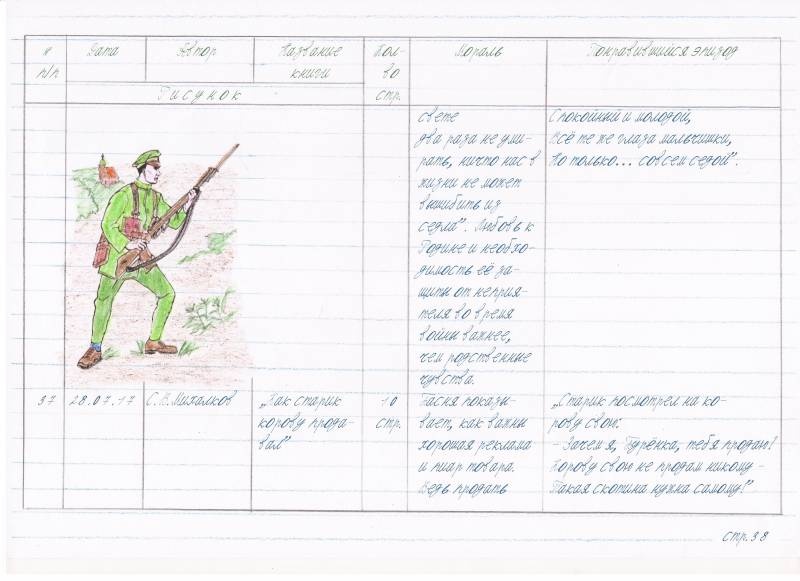 N Дата Автор Название Кол- Мораль Понравившийся эпизод
п/п книги во
Рисунок стр.
свете
два раза не уми-
рать, ничто нас в
жизни не может
вышибить из
седла". Любовь к
Родине и необхо-
димость её за-
щиты от неприя-
теля во время
войны важнее,
чем родственные
чувства.
Спокойный и молодой,
Всё те же глаза мальчишки,
Но только... совсем седой".
37 28.07.17 С.В.Михалков „Как старик
корову прода-
вал"
10
стр.
Басня показы-
вает, как важны
хорошая реклама
и пиар товара.
Ведь продать
„Старик посмотрел на ко-
рову свою:
- Зачем я, Бурёнка, тебя продаю?
Корову свою не продам никому -
Такая скотина нужна самому!"
стр.38